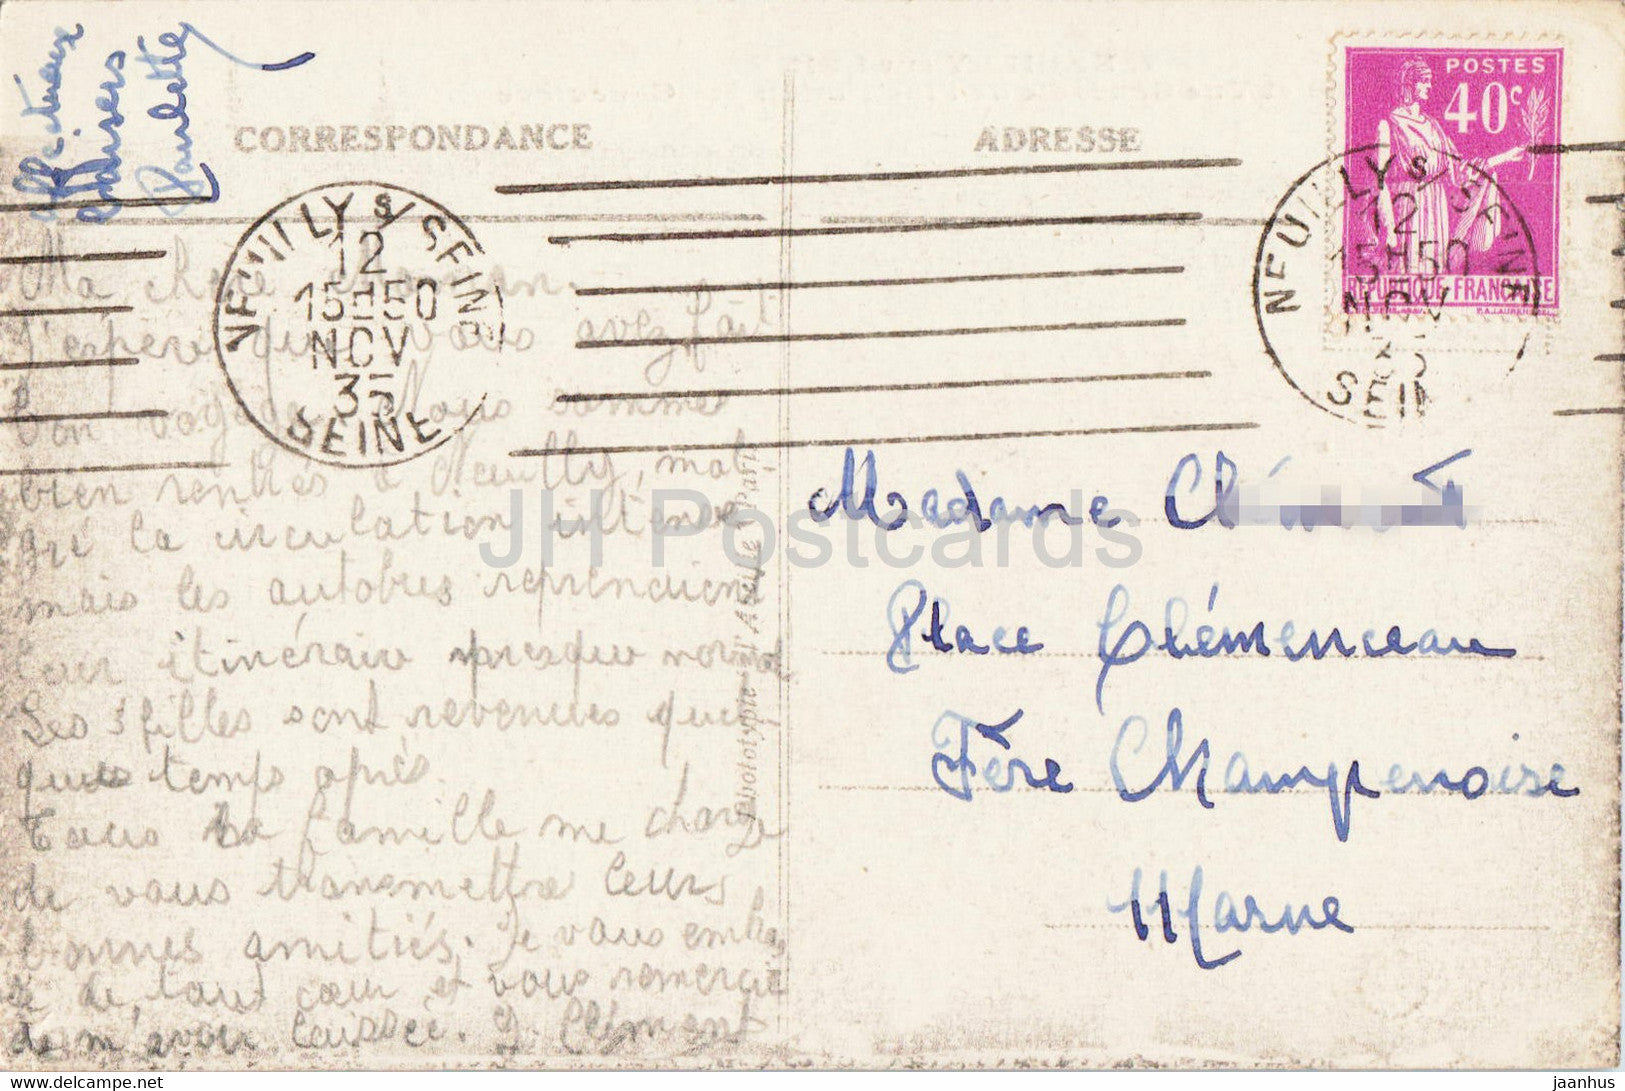 Affectueux
baisers
Paulette
CORRESPONDANCE
ADRESSE
POSTES
40c
REPUBLIQUE FRANCAISE
NEUILLY S/ SEINE
12
15H50
NOV
35
SEINE
NEUILLY S/ SEINE
12
15H50
NOV
SEINE
Ma chère
J'espère que vous avez fait
bon voyage. Nous sommes
bien rentrés à Neuilly, mal
gré la circulation intense
mais les autobus reprenaient
leur itinéraire presque normal
Les 3 filles sont revenues quel
ques temps après.
Toute la famille me charge
de vous transmettre leurs
bonnes amitiés. Je vous embras
se de tout cœur et vous remercie
de m'avoir laissée. J. Clément
Phototypie d'Art Paris
Madame Clé
Place Clémenceau
Fère Champenoise
Marne
JH Postcards
jaanhus www.delcampe.net